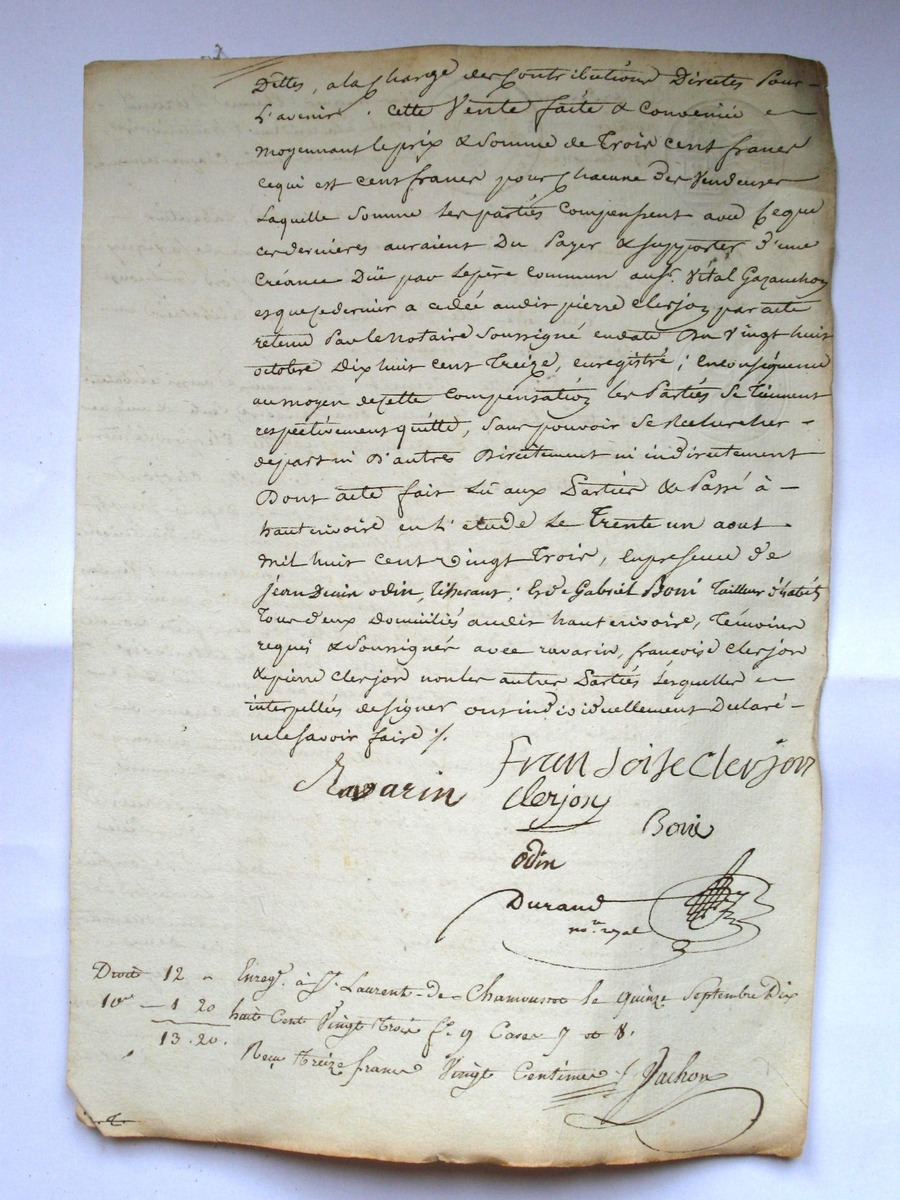 Dettes, a la Charge des Contributions Directes pour
L'avenir. cette Vente faite & convenue
moyennant le prix & somme de Trois cent francs
ce qui est cent francs pour Chacune des Vendeuses
Laquelle somme les parties compensent avec ce que
ces dernieres auraient Du payer & supporter d'une
Créance Düe par le père commun au sr. Vital Gazanchon
et que ce dernier a cédée audit pierre Clerjon par acte
retenu par le Notaire soussigné en date Du Vingt huit
octobre Dix huit cent Treize, enregistré; en conséquence
au moyen de cette Compensation les Parties se tiennent
respectivement quitte, sans pouvoir se Rechercher
de part ni D'autres Directement ni indirectement
Dont acte fait Lû aux Parties & Passé à
hauterivoire en L'etude Le Trente un aout
mil huit cent vingt Trois, en presence de
jean Denis odin, tisserant, & de Gabriel Boni Tailleur d'habits
Tous deux Domiciliés audit hauterivoire, Témoins
requis & soussignés avec ravarin, françoise clerjon
& pierre clerjon non les autres Parties lesquelles
interpellés de signer ont individuellement Déclaré
ne le savoir faire ./.
Ravarin Fransoise Clerjon
Clerjon
Boni
odin
Durand
nore. royal
Droit 12 " Enregé. à St. Laurent-de-Chamousset le quinze Septembre Dix
10me 1 20 huit Cent Vingt trois fo. 9 Cases 7 et 8.
13.20. Recu treize francs Vingt Centimes ./. Jachon